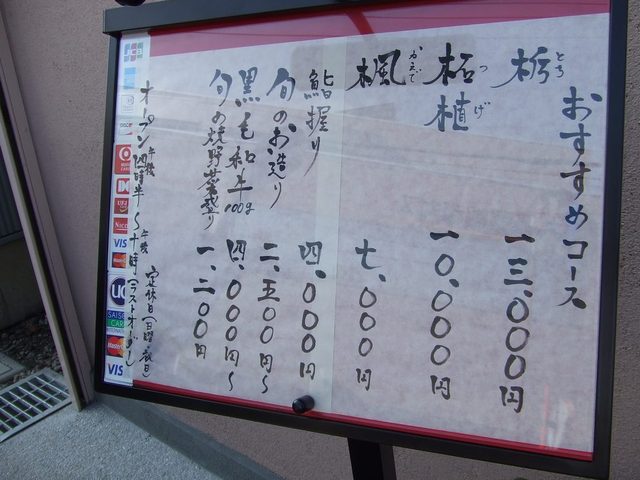 おすすめコース
栃 とち 一三、〇〇〇円
柘植 つげ 一〇、〇〇〇円
楓 かえで 七、〇〇〇円
鮨握り 四、〇〇〇円
旬のお造り 二、五〇〇円～
黒毛和牛100g 四、〇〇〇円～
旬の焼野菜盛り 一、二〇〇円
オープン 午後四時半～午後十時(ラストオーダー)
定休日(日曜・祝日)
JCB
UFJ
Nicos
VISA
MasterCard
UC
SAISON CARD
MasterCard
VISA